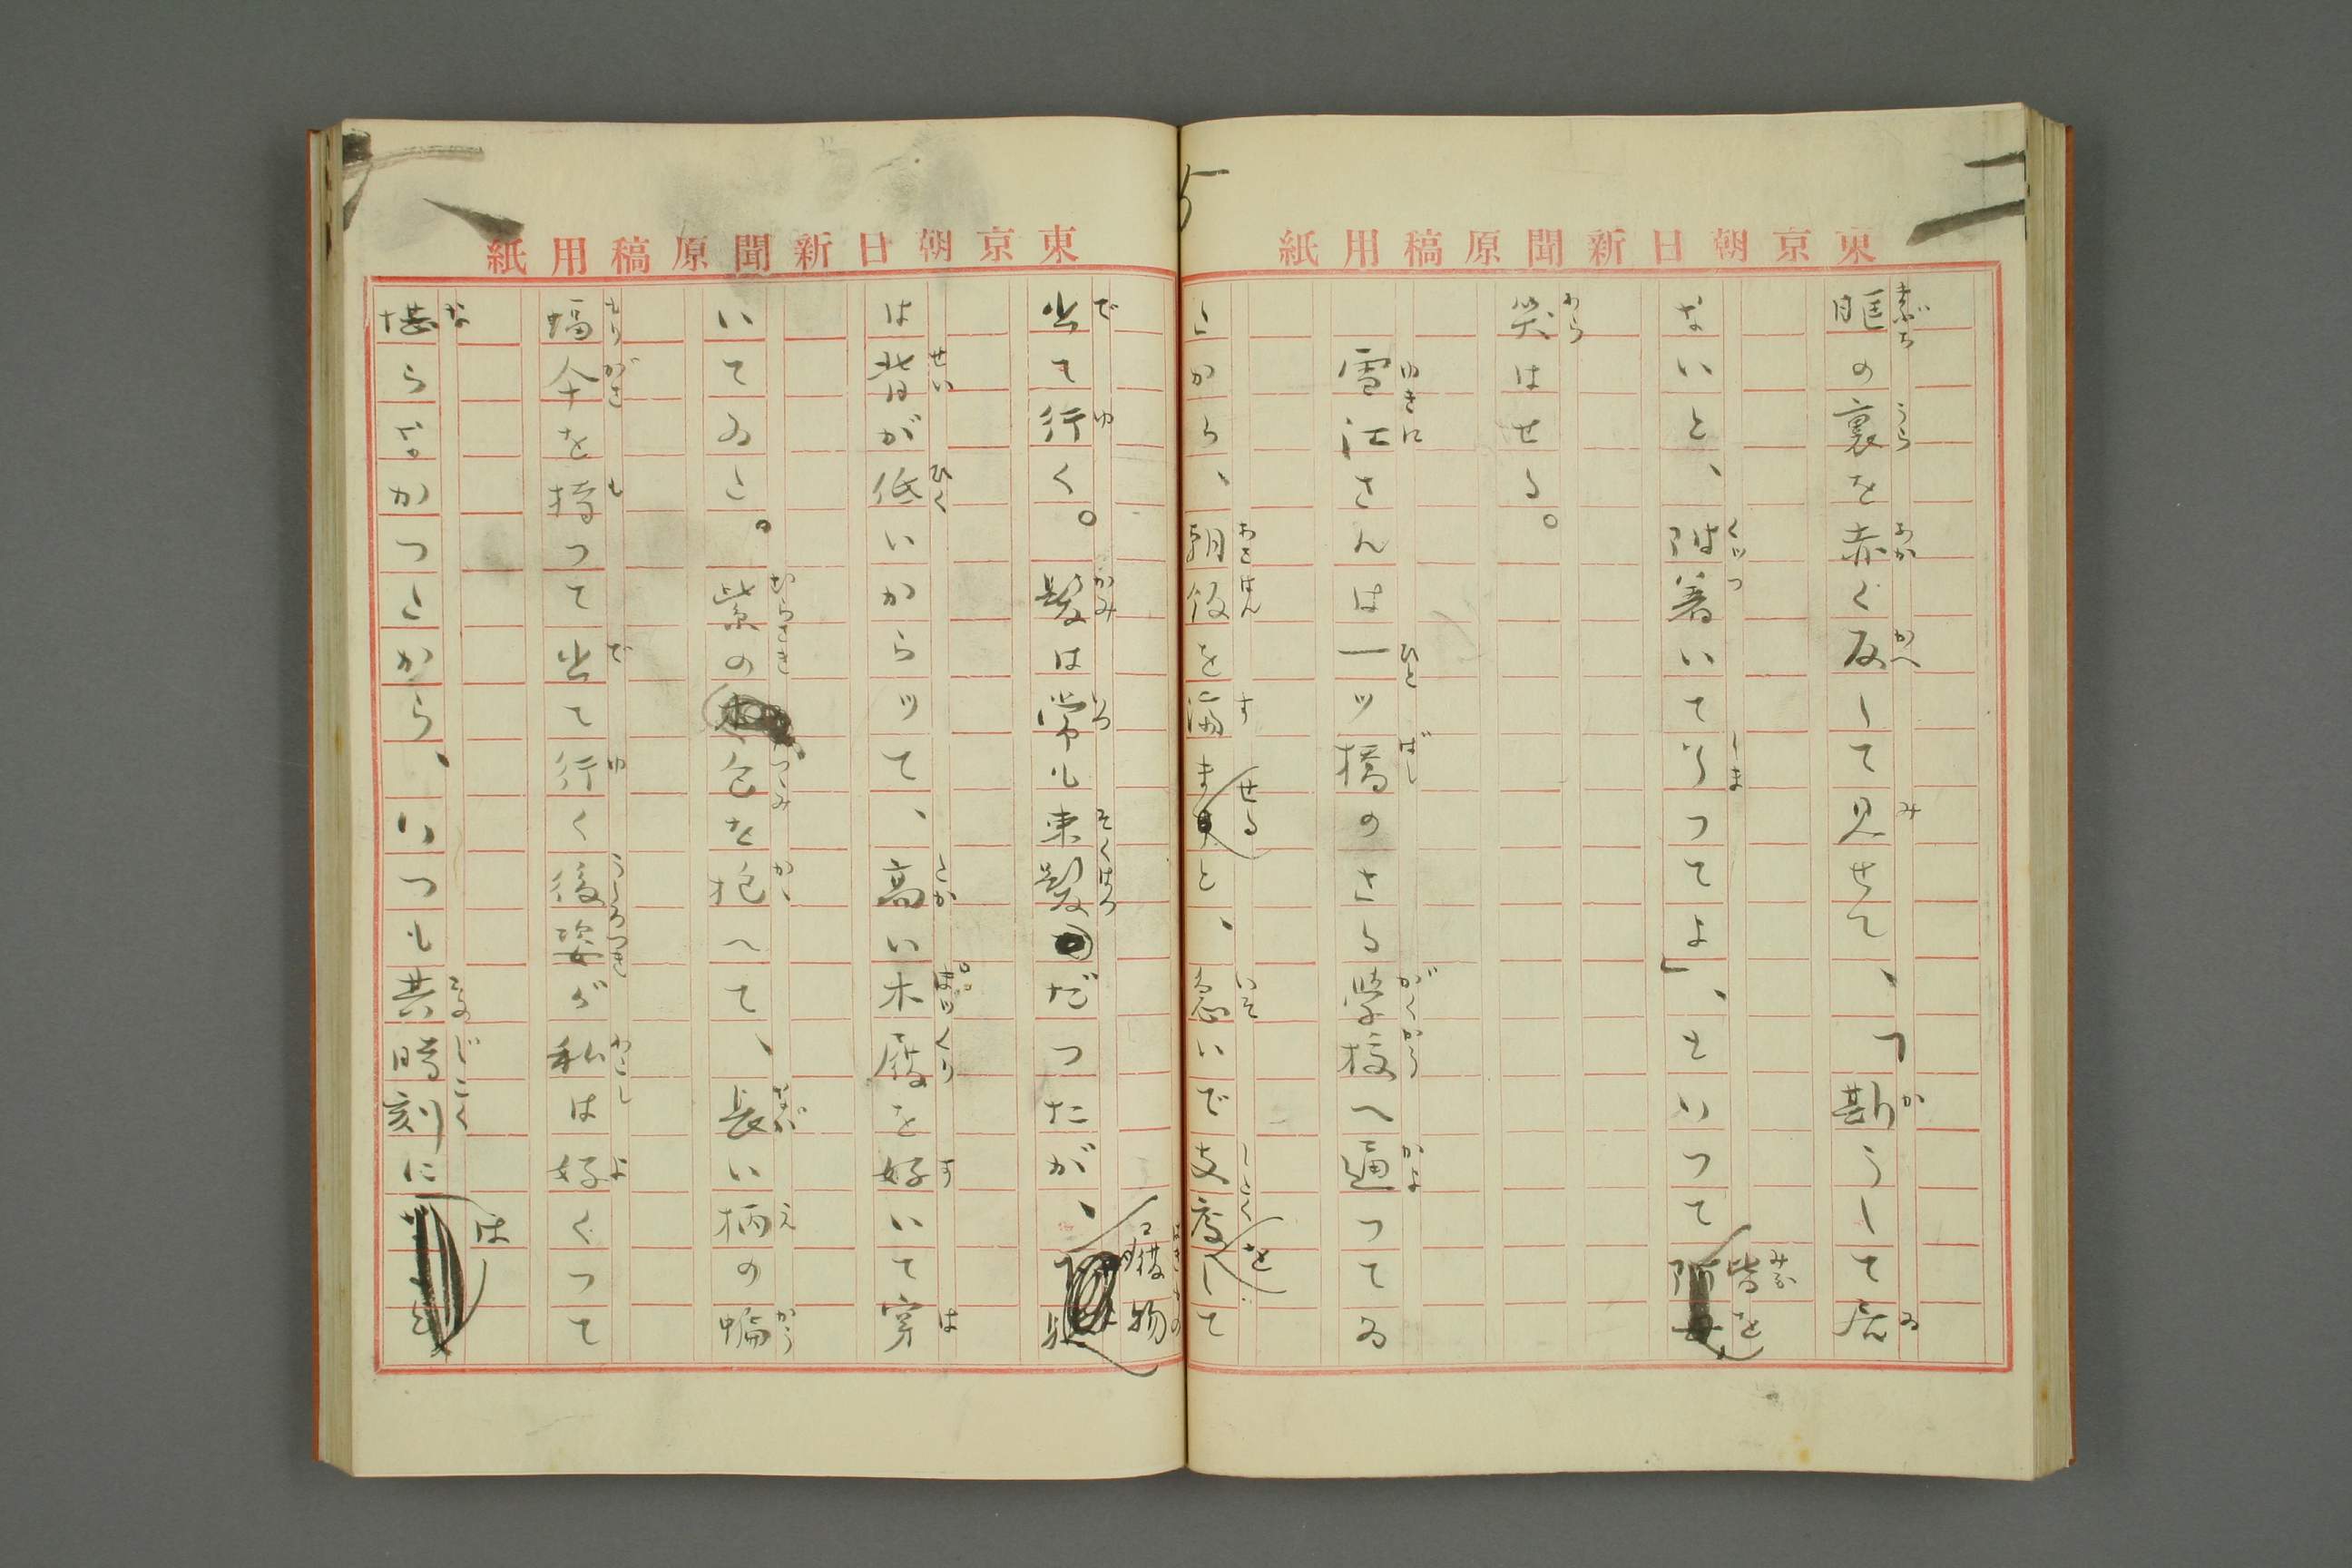 東京朝日新聞原稿用紙
眶の裏を赤く反して見せて、「斯うして居
ないと、附着いて了つてよ」、といつて皆を
笑はせる。
雪江さんは一ツ橋のさる学校へ通つてゐ
たから、朝飯を済ませると、急いで支度をして
東京朝日新聞原稿用紙
出て行く。髪は常も束髪だつたが、履物
は背が低いからツて、高い木履を好いて穿
いてゐた。紫の包を抱へて、長い柄の蝙
蝠傘を持つて出て行く後姿が私は好くつて
堪らなかつたから、いつも其時刻には